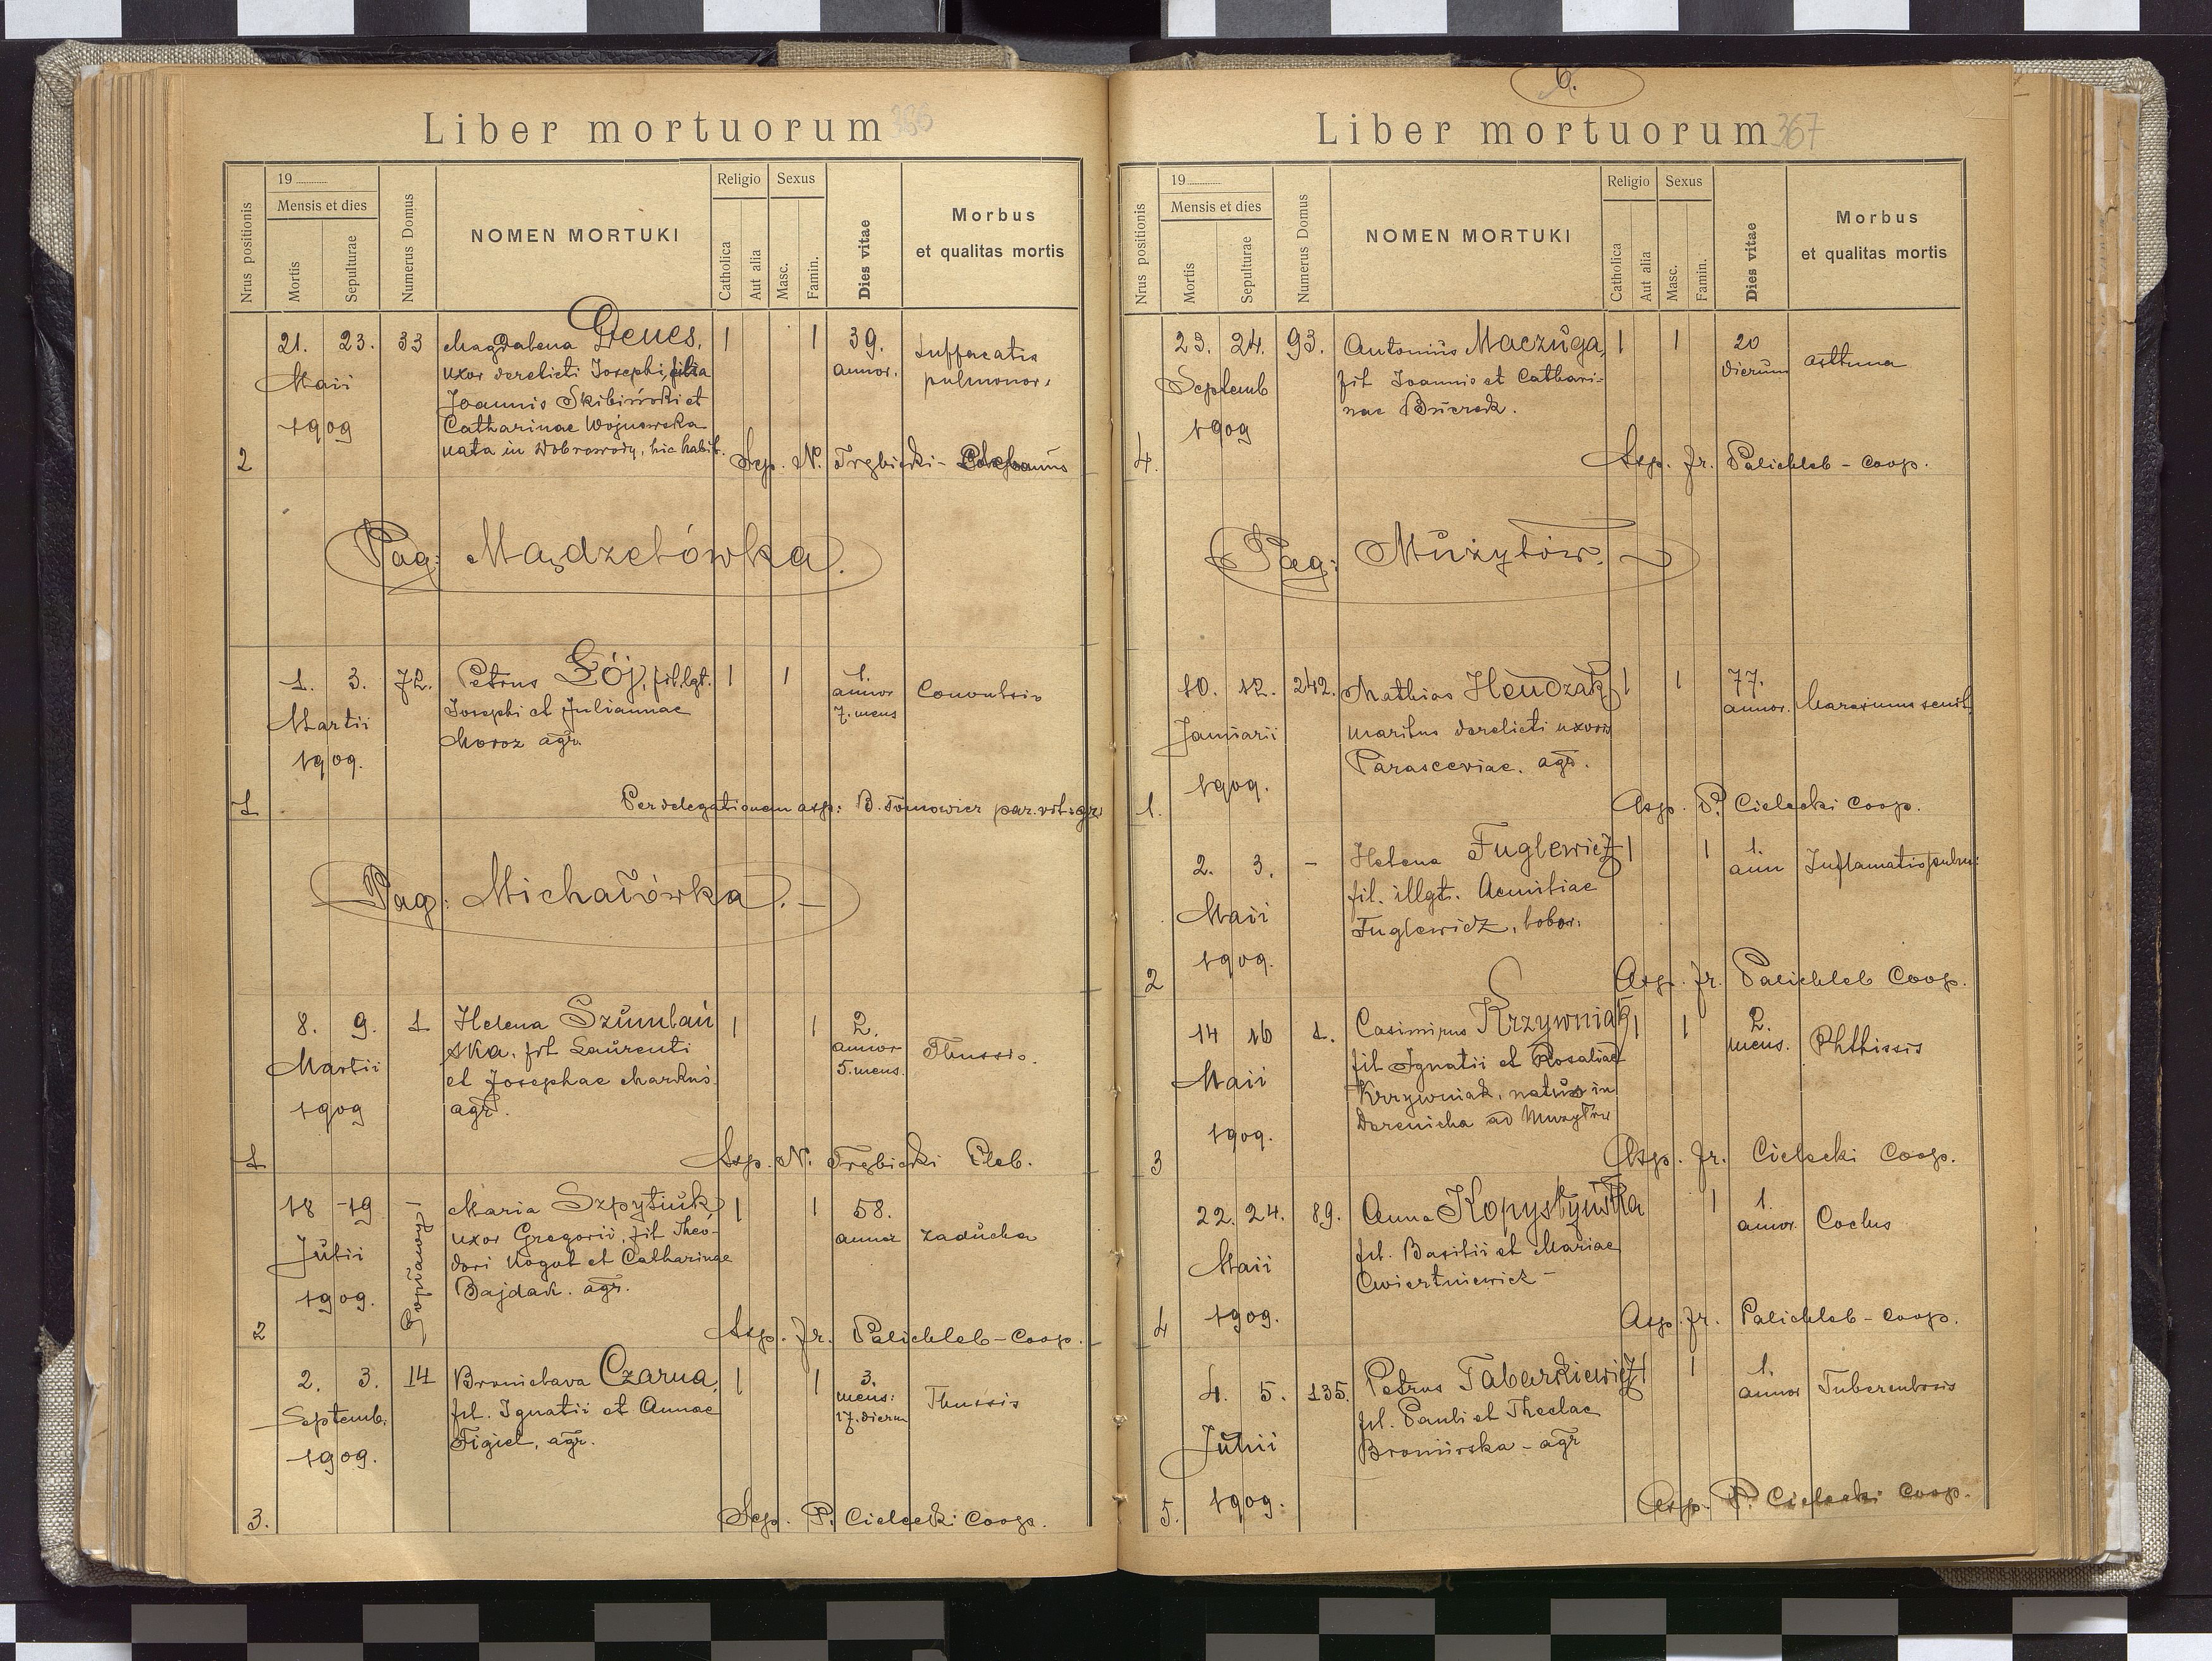 Liber mortuorum
19
Mensis et dies
Nrus positionis
Mortis
Sepulturae
Numerus Domus
NOMEN MORTUKI
Religio
Catholica
Aut alia
Sexus
Masc.
Famin.
Dies vitae
Morbus
et qualitas mortis
21. 23. 33 Magdalena Denes, 1 1 39. Suffocatio
Maii uxor derelicti Josephi, filia annor. pulmonor.
1909 Joannis Skibiński et
Catharinae Wojnowska
nata in Dobrowody, hic habit.
2 Asp. N. Trzbicki -
Pag: Mądzelówka.
1. 3. 72. Petrus Łój, fil. lgt. 1 1 1. Convulsio
Martii Josephi et Juliannae annor
1909. Moroz agr. 7. mens
1 Per delegationem asp: B. Tomowicz par. rit. gr.
Pag: Michałówka. -
8. 9. 1 Helena Szumlań 1 1 2. Thussis.
Martii ska, fil Laurenti annor
1909 et Josephae Markus 5. mens.
agr.
1 Asp. N. Trzbicki Pleb.
18 19 Maria Szpytiuk, 1 1 58. zaducha
Julii uxor Gregorii, fil Theo- annor
1909. dori Kogut et Catharinae
Bajdak. agr.
2 Asp. Jr. Palichleb - Coop.
2. 3. 14 Bronislava Czarna, 1 1 3. Thussis
Septemb. fil. Ignatii et Annae mens:
1909. Figiel, agr. 17. dierum
3. Asp. P. Cielecki Coop.
6.
Liber mortuorum 367
19
Mensis et dies
Nrus positionis
Mortis
Sepulturae
Numerus Domus
NOMEN MORTUKI
Religio
Catholica
Aut alia
Sexus
Masc.
Famin.
Dies vitae
Morbus
et qualitas mortis
23. 24. 93. Antonius Maczuga, 1 1 20 asthma
Septemb fil Joannis et Cathari- dierum
1909 nae
4. Asp. Jr. Palichleb - Coop.
Pag: Mużyłów.
10. 12. 242. Mathias Heudzak 1 1 77. Marasmus senil.
Januarii maritus derelicti uxoris annor.
1909. Parasceviae. agr.
1. Asp. P. Cielecki Coop.
2. 3. - Helena Fuglewicz 1 1 1. Inflamatio pulm:
Maii fil. illgt. Aemiliae ann
1909. Fuglewicz, labor.
2 Asp. Jr. Palichleb Coop.
14 16 1. Casimirus Krzywniak 1 1 2. Phthissis
Maii fil Ignatii et Rosaliae mens.
1909. Krzywniak, natus in
Darenicha ad Muzyłów
3 Asp. Jr. Cielecki Coop.
22. 24. 89. Anna Kopystyńska 1 1. Coclus
Maii fil. Basilii et Mariae annor.
1909. Cwiertniewicz -
4 Asp. Jr. Palichleb - Coop.
4. 5. 135. Petrus Tabarkiewicz 1 1 1. Tuberculosis
Junii fil. Pauli et Theclae annor
1909. Bromirska - agr
5. Asp. P. Cielecki Coop.